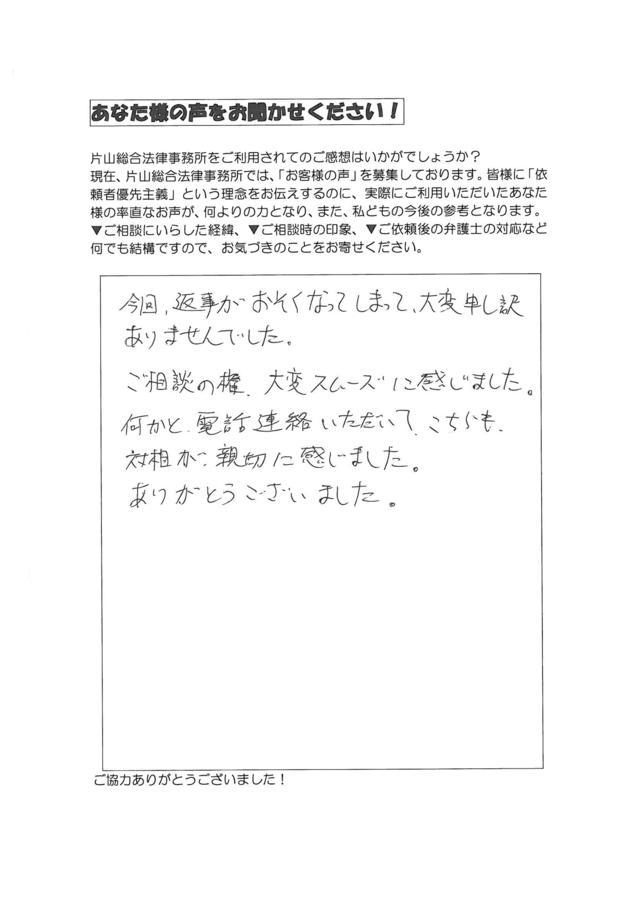 あなた様の声をお聞かせください！
片山総合法律事務所をご利用されてのご感想はいかがでしょうか？
現在、片山総合法律事務所では、「お客様の声」を募集しております。皆様に「依
頼者優先主義」という理念をお伝えするのに、実際にご利用いただいたあなた
様の率直なお声が、何よりの力となり、また、私どもの今後の参考となります。
▼ご相談にいらした経緯、▼ご相談時の印象、▼ご依頼後の弁護士の対応など
何でも結構ですので、お気づきのことをお寄せください。
今回、返事がおそくなってしまって、大変申し訳
ありませんでした。
ご相談の権、大変スムーズに感じました。
何かと、電話連絡いただいて、こちらも、
対相が、親切に感じました。
ありがとうございました。
ご協力ありがとうございました！